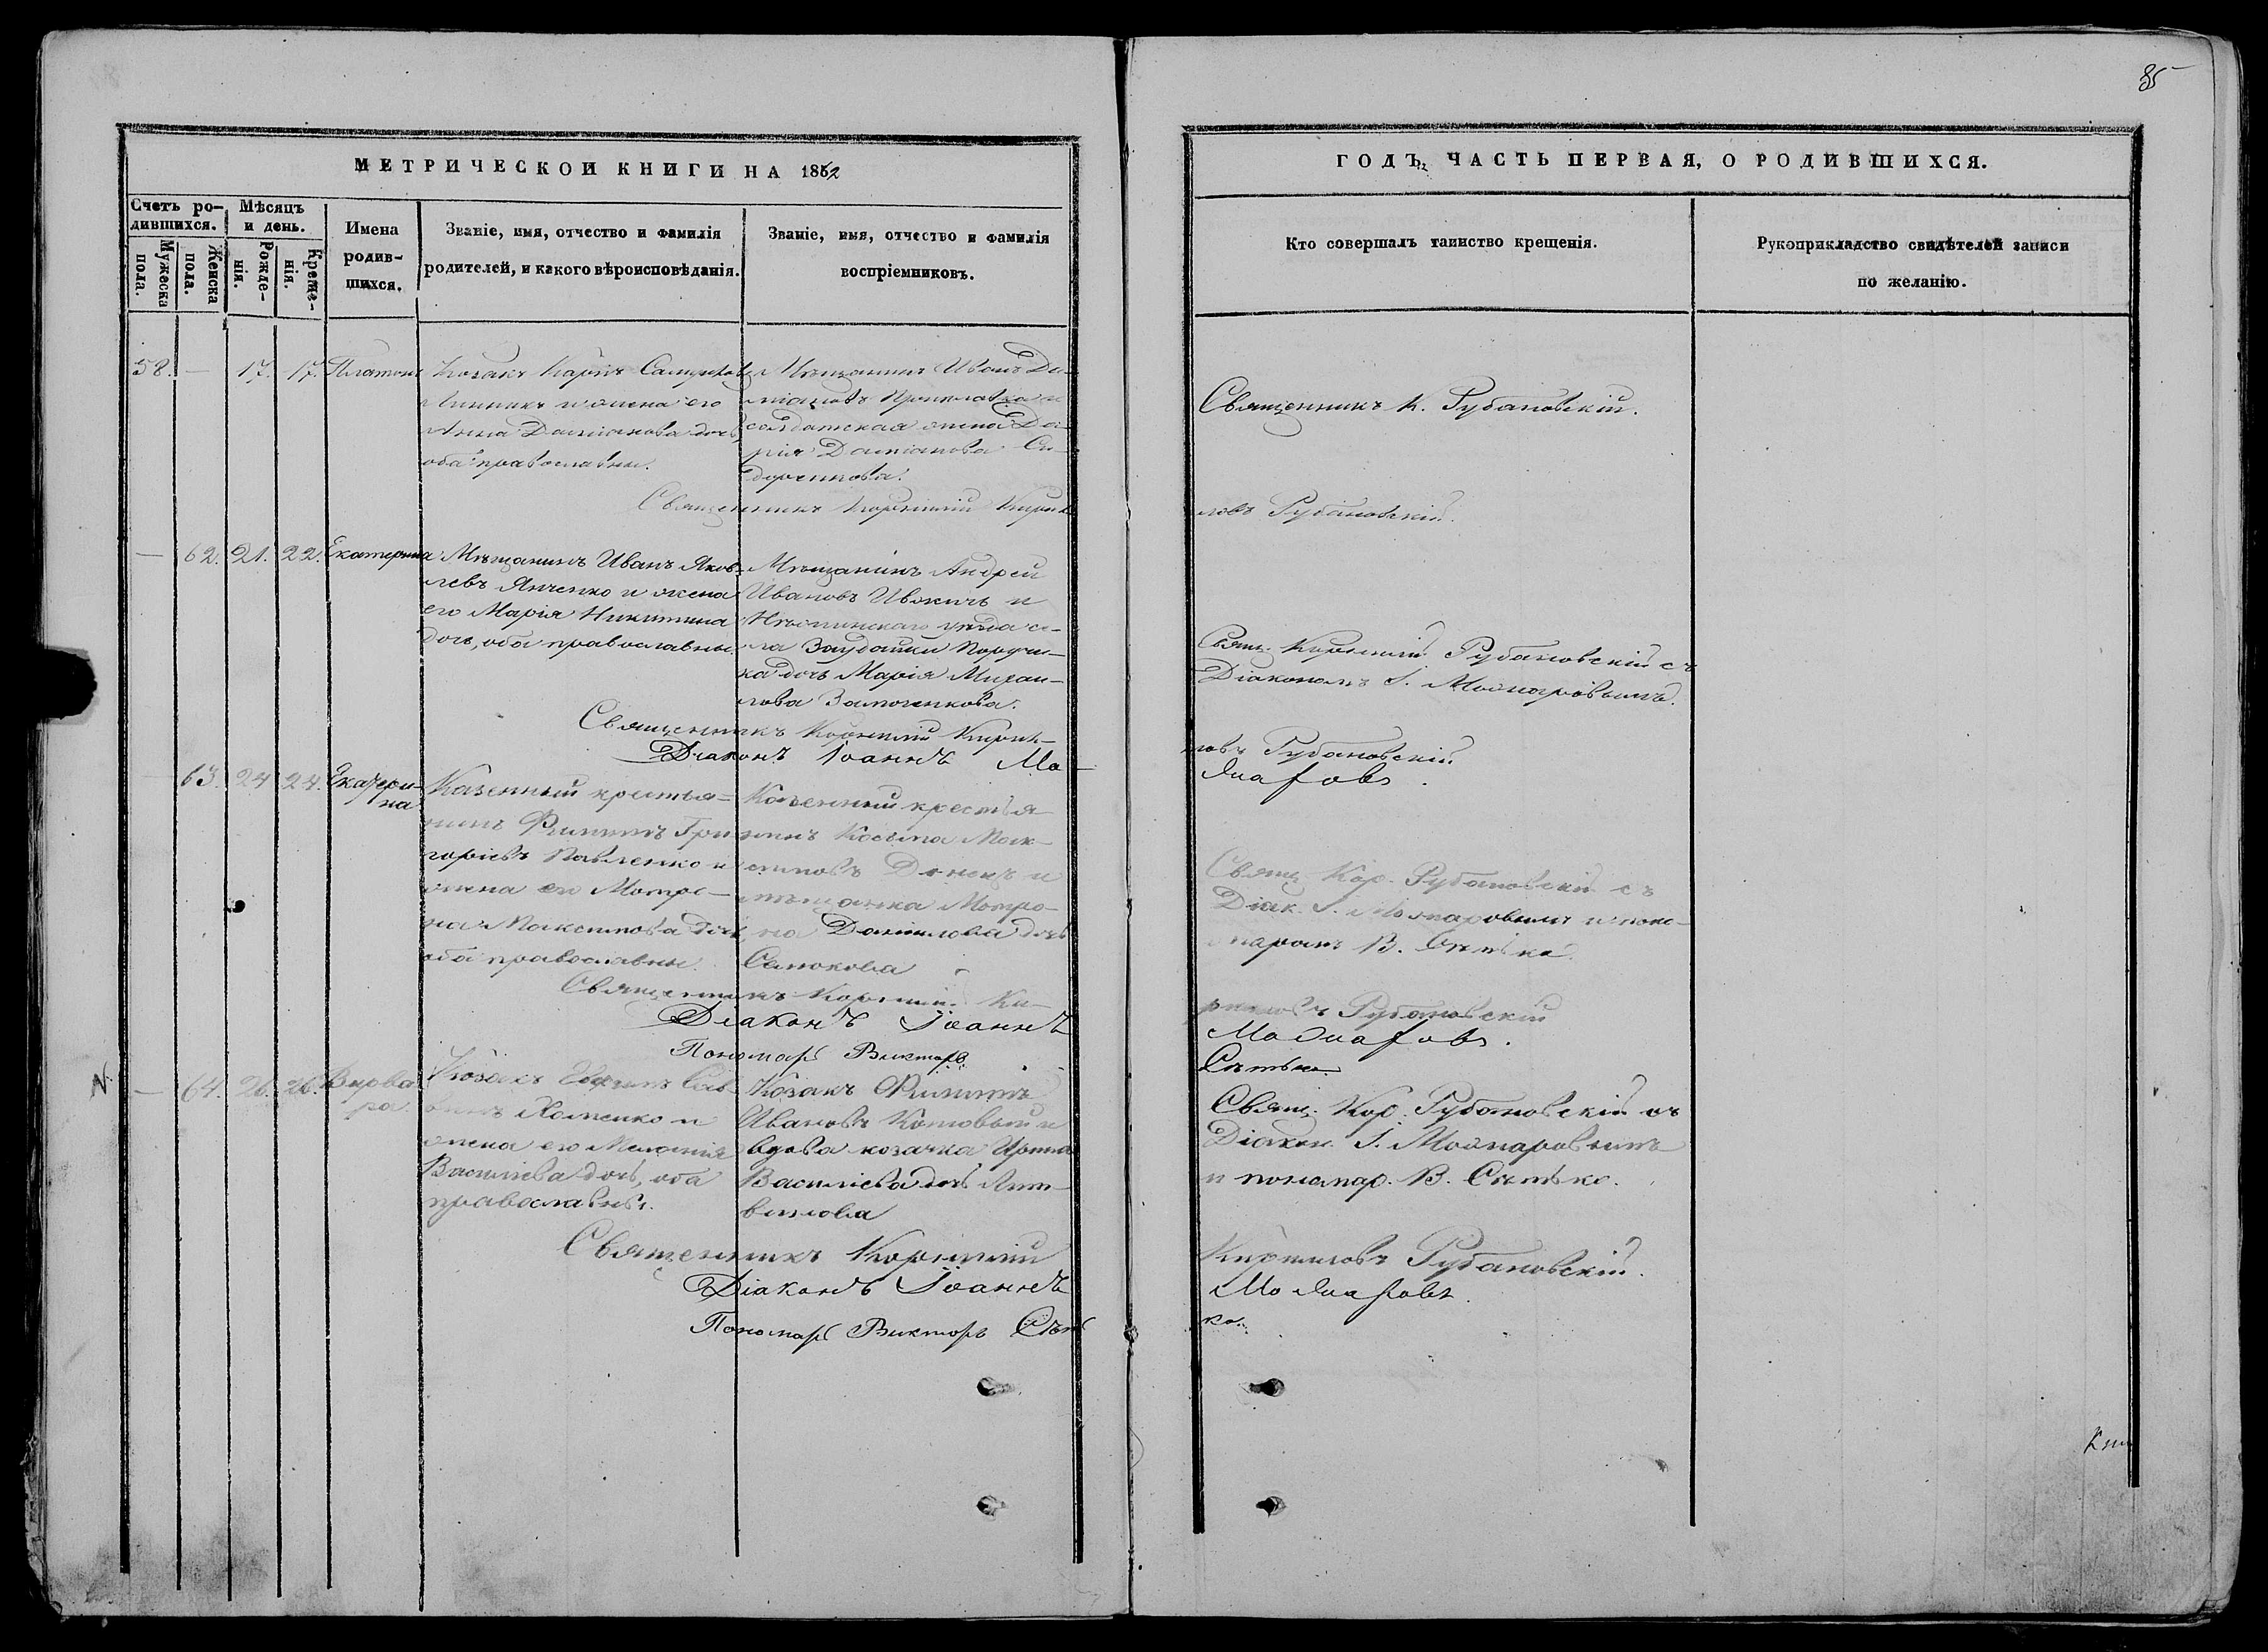 85
МЕТРИЧЕСКОЙ КНИГИ НА 1862
ГОДЪ, ЧАСТЬ ПЕРВАЯ, О РОДИВШИХСЯ.
Счетъ ро-
дившихся.
Мужеска
пола.
Женска
пола.
Мѣсяцъ
и день.
Рожде-
нія.
Креще-
нія.
Имена
родив-
шихся.
Званіе, имя, отчество и фамилія
родителей, и какого вѣроисповѣданія.
Званіе, имя, отчество и фамилія
воспріемниковъ.
Кто совершалъ таинство крещенія.
Рукоприкладство свидѣтелей записи
по желанію.
58. — 17. 17. Платонъ
Козакъ Карпъ
и жена его
Анна Даміанова дочь,
оба православные.
Мѣщанинъ Иванъ Да-
міановъ и
солдатская жена Да-
рія Даміанова Си-
доренкова.
Священникъ К. Рубановскій.
Священникъ Корнилій Кирил-
ловъ Рубановскій.
— 62. 21. 22. Екатерина
Мѣщанинъ Иванъ Яков-
левъ Янченко и жена
его Марія Никитина
дочь, оба православные.
Мѣщанинъ Андрей
Ивановъ и
Нѣжинскаго уѣзда се-
ла Заудайки
дочь Марія Михаи-
лова
Свящ. Корнилій Рубановскій съ
Діакономъ І. Моднаровымъ.
Священникъ Корнилій Кирил-
ловъ Рубановскій
Діаконъ Іоаннъ Мо-
днаровъ.
63. 24 24. Екатери-
на
Казенный крестья-
нинъ Филиппъ Гри-
горіевъ Павленко и
жена его Мотро-
на Максимова дочь,
оба православные.
Казенный крестья-
нинъ Косьма Мак-
симовъ Донецъ и
мѣщанка Мотро-
на Данилова дочь
Сенюкова
Свящ. Кор. Рубановскій съ
Діак. І. Моднаровымъ и поно-
маремъ В. Сѣтько.
Священникъ Корнилій Ки-
рилловъ Рубановскій
Діаконъ Іоаннъ
Моднаровъ.
Пономарь Викторъ
Сѣтько
— 64. 26. 26. Варва
ра.
Козакъ Евфимъ Сав-
винъ Хоменко и
жена его Меланія
Василіева дочь, оба
православные.
Козакъ Филиппъ
Ивановъ Котовый и
вдова козачка Ирина
Василіева дочь Лит-
винова
Свящ. Кор. Рубановскій съ
Діакон. І. Моднаровымъ
и пономар. В. Сѣтько.
Священникъ Корнилій
Кирилловъ Рубановскій.
Діаконъ Іоаннъ
Моднаровъ.
Пономарь Викторъ Сѣть
ко.